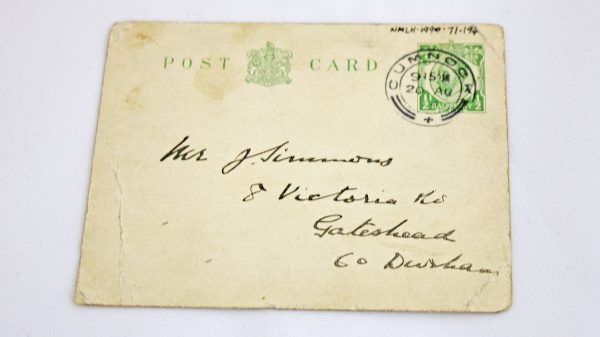 NMLH·1990·71·194
POST CARD
CUMNOCK
9 15 M
20 AU
½ ½
Mr J. Simmons
8 Victoria Rd
Gateshead
Co Durham